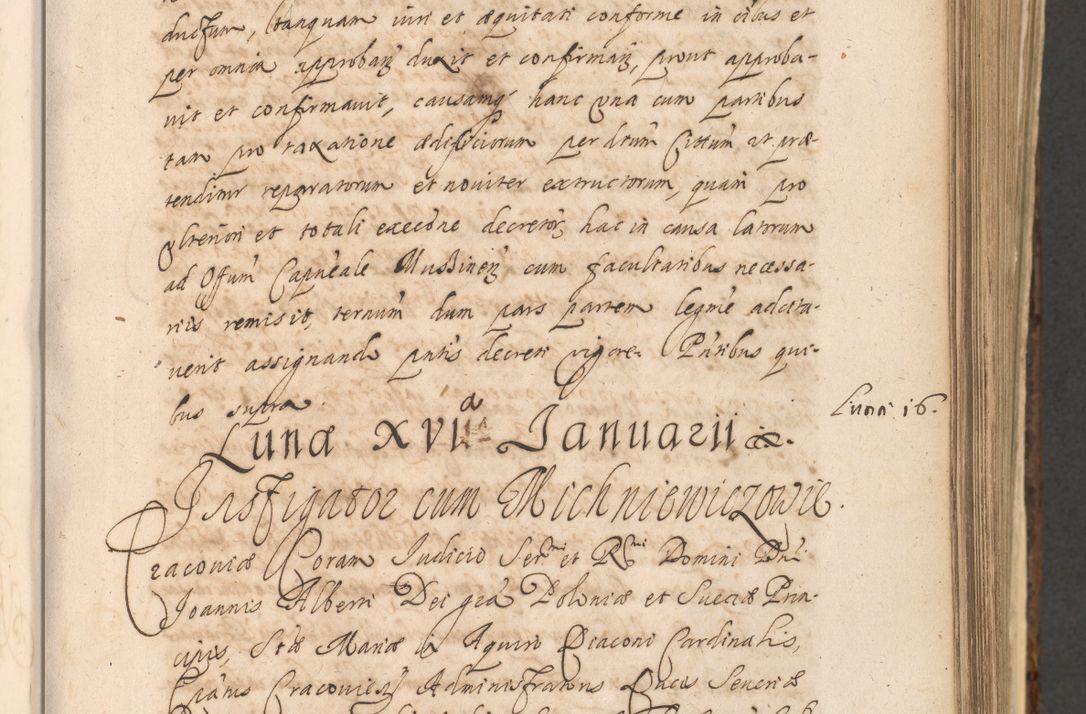 ductum, tanquam iuri et æquitati conforme in oibus et
per omnia approbanḍ duxit et confirmanḍ, prout approba-
vit et confirmavit, causamq́ hanc una cum partibus
tam pro taxatione ædificiorum per dictum Cittum ut præ-
tenditur reparatorum et noviter extructorum, quam pro
ulteriori et totali execone decretoꝝ hac in causa latorum
ad Offum Capneale Mussinen̄ cum facultatibus necessa-
riis remisit, ternum dum pars partem legme adcita-
verit assignando pntis decreti vigore. Pntibus qui-
bus supra.
Lunæ XVIa Ianuarii
Luna 16.
Instigator cum Michniewiczowie.
Cracoviæ Coram Iudicio Serni et Rmi Domini Dni
Ioannis Alberti Dei gra Poloniæ et Sueciæ Prin-
cipis, Stæ Mariæ in Aquiro Diaconi Cardinalis,
Epatus Cracovien̄ Administratoris Ducis Severiæ